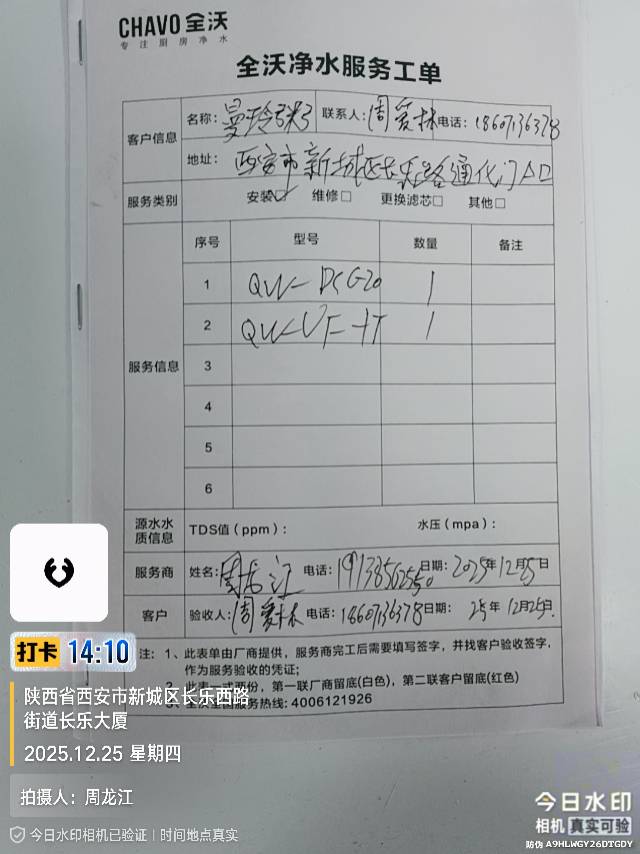 CHAVO 全沃
专注厨房净水
全沃净水服务工单
客户信息
名称：曼玲粥 联系人：周爱林 电话：18607136378
地址：西安市新城区长乐路通化门A口
服务类别 安装☑ 维修□ 更换滤芯□ 其他□
服务信息
序号 型号 数量 备注
1 QW-DCG20 1
2 QW-UF-1T 1
3
4
5
6
源水水质信息 TDS值（ppm）： 水压（mpa）：
服务商 姓名：周龙江 电话：19138562550 日期：2025年12月25日
客户 验收人：周爱林 电话：18607136378 日期：25年12月25日
注：1、此表单由厂商提供，服务商完工后需要填写签字，并找客户验收签字，
作为服务验收的凭证；
2、此表一式两份，第一联厂商留底(白色)，第二联客户留底(红色)
3、全沃全国服务热线：4006121926
打卡 14:10
陕西省西安市新城区长乐西路
街道长乐大厦
2025.12.25 星期四
拍摄人：周龙江
今日水印相机已验证｜时间地点真实
今日水印
相机 真实可验
防伪 A9HLWGY26DTGDY